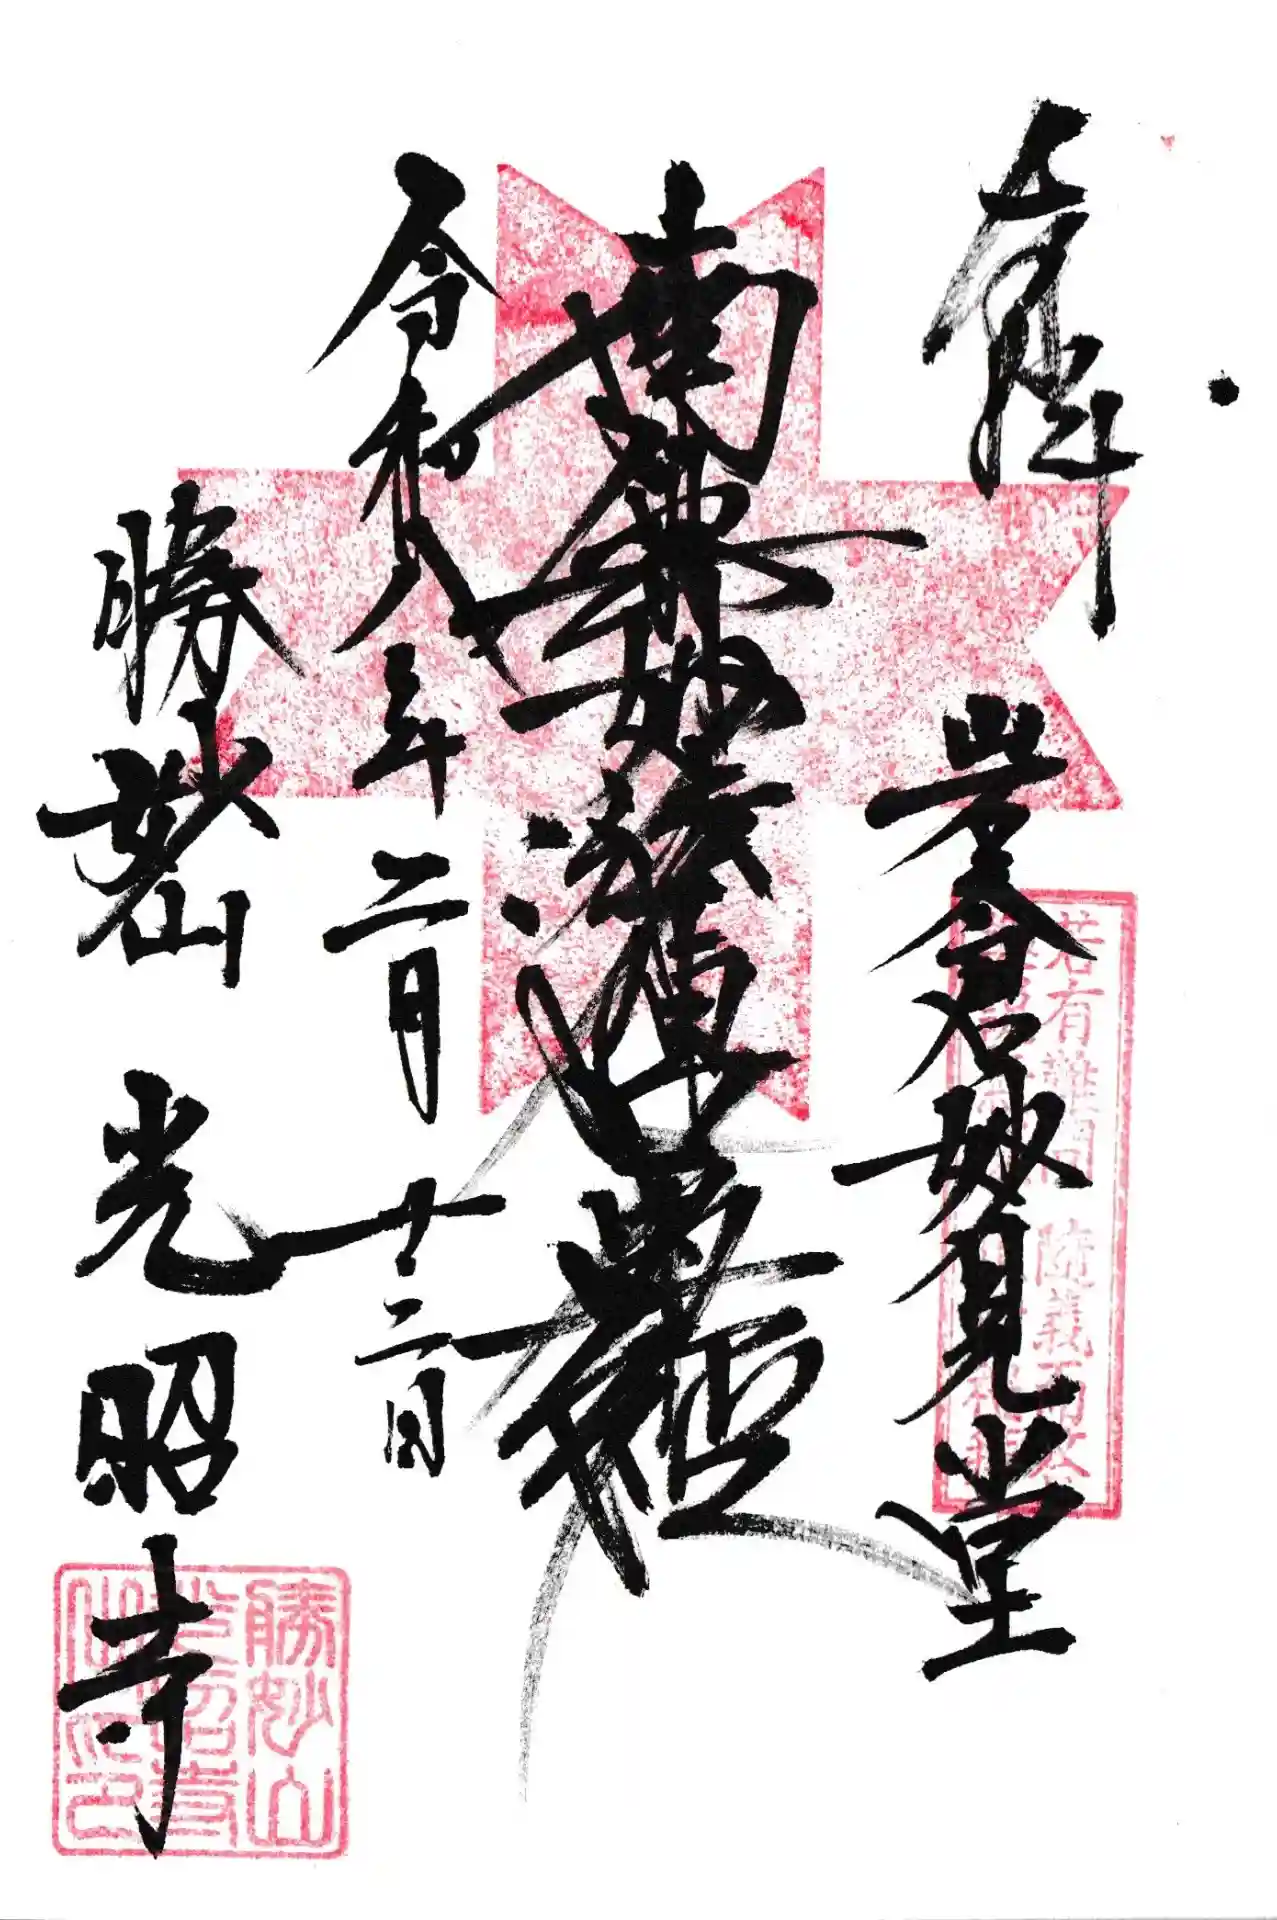 奉拝
岩倉妙見堂
若有難問 隨義而答
南無妙法蓮華經
令和八年二月十二日
勝妙山 光昭寺
勝妙山
光昭寺